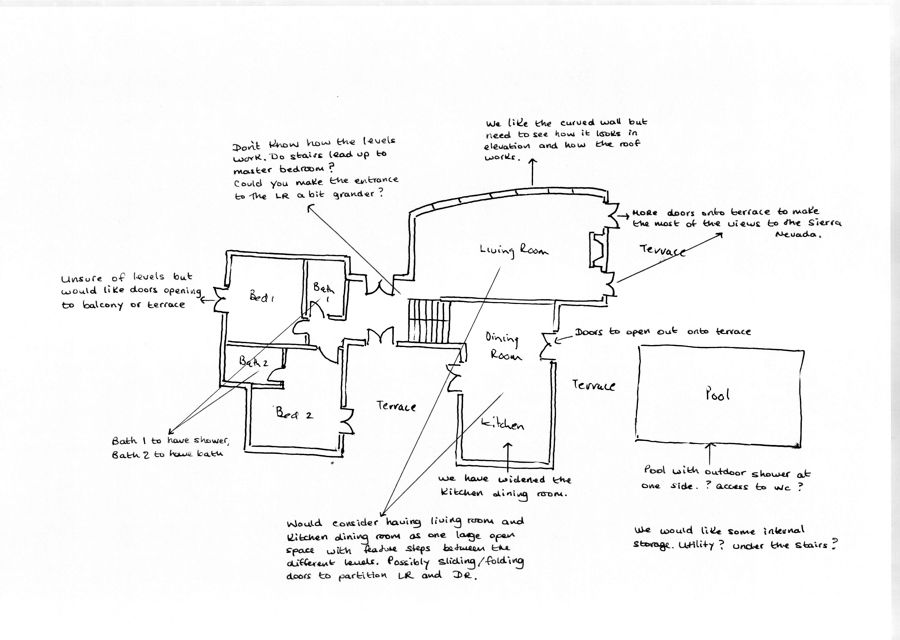 We like the curved wall but
need to see how it looks in
elevation and how the roof
works.
Don't know how the levels
work. Do stairs lead up to
master bedroom?
Could you make the entrance
to the LR a bit grander?
More doors onto terrace to make
the most of the views to the Sierra
Nevada.
Living Room
Terrace
Unsure of levels but
would like doors opening
to balcony or terrace
Bed 1
Bath
1
Dining
Room
Doors to open out onto terrace
Bath 2
Bed 2
Terrace
Terrace
Pool
Kitchen
Bath 1 to have shower,
Bath 2 to have bath
We have widened the
kitchen dining room.
Pool with outdoor shower at
one side. ? access to WC?
Would consider having living room and
kitchen dining room as one large open
space with feature steps between the
different levels. Possibly sliding/folding
doors to partition LR and DR.
We would like some internal
storage. Utility? under the stairs?